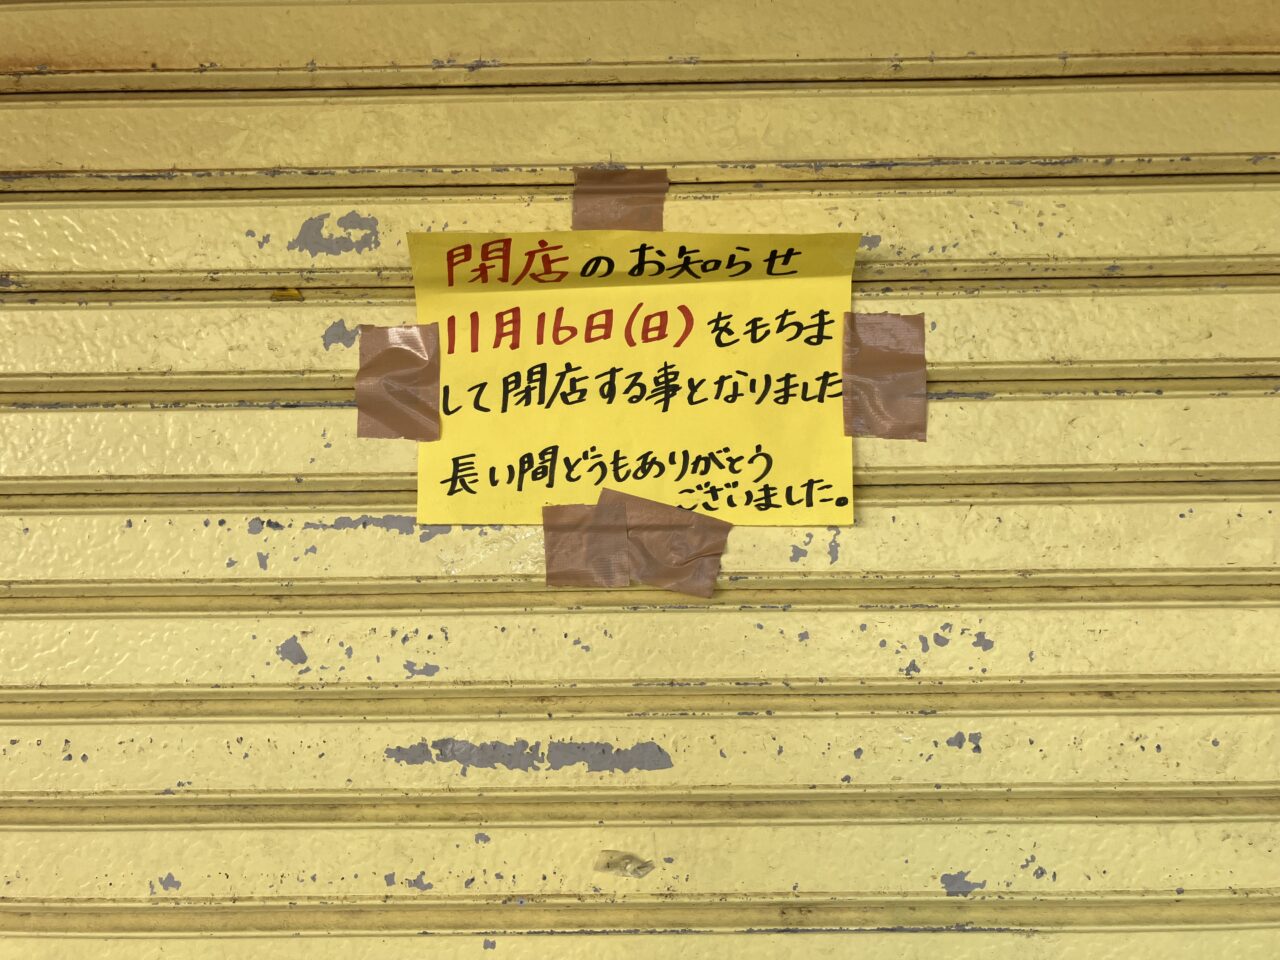 閉店のお知らせ
11月16日(日)をもちま
して閉店する事となりました
長い間どうもありがとう
ございました。